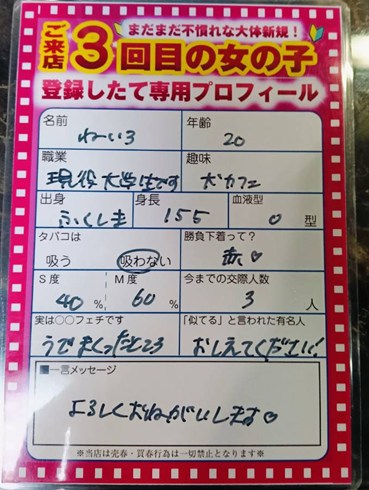 まだまだ不慣れな大体新規！
ご来店3回目の女の子
登録したて専用プロフィール
名前 ねいろ 年齢 20
職業 現役大学生です 趣味 犬カフェ
出身 ふくしま 身長 155 血液型 O 型
タバコは 吸う 吸わない 勝負下着って？ 赤♡
S度 40% M度 60% 今までの交際人数 3人
実は○○フェチです うでまくったところ 「似てる」と言われた有名人 おしえてください!
■一言メッセージ
よろしくおねがいします♡
※当店は売春・買春行為は一切禁止となります※